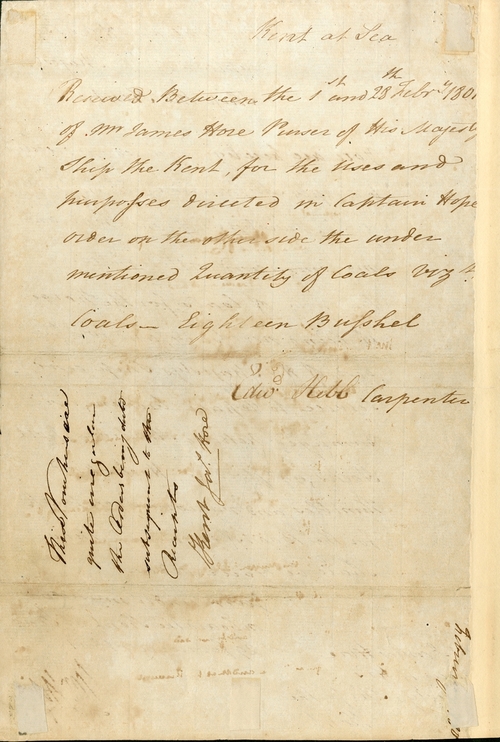 Kent at Sea
Received Between the 1st and 28th Febry 1801
of Mr James Hore Purser of His Majesty
Ship the Kent, for the Uses and
purposses directed in Captain Hope
order on the other side the under
mentioned Quantity of Coals vizt
Coals — Eighteen Bushel
Edwd Hebb Carpenter
This Voucher is
quite irregular
the Order being date
subsequent to the
Receipts
Kent Jas Hore